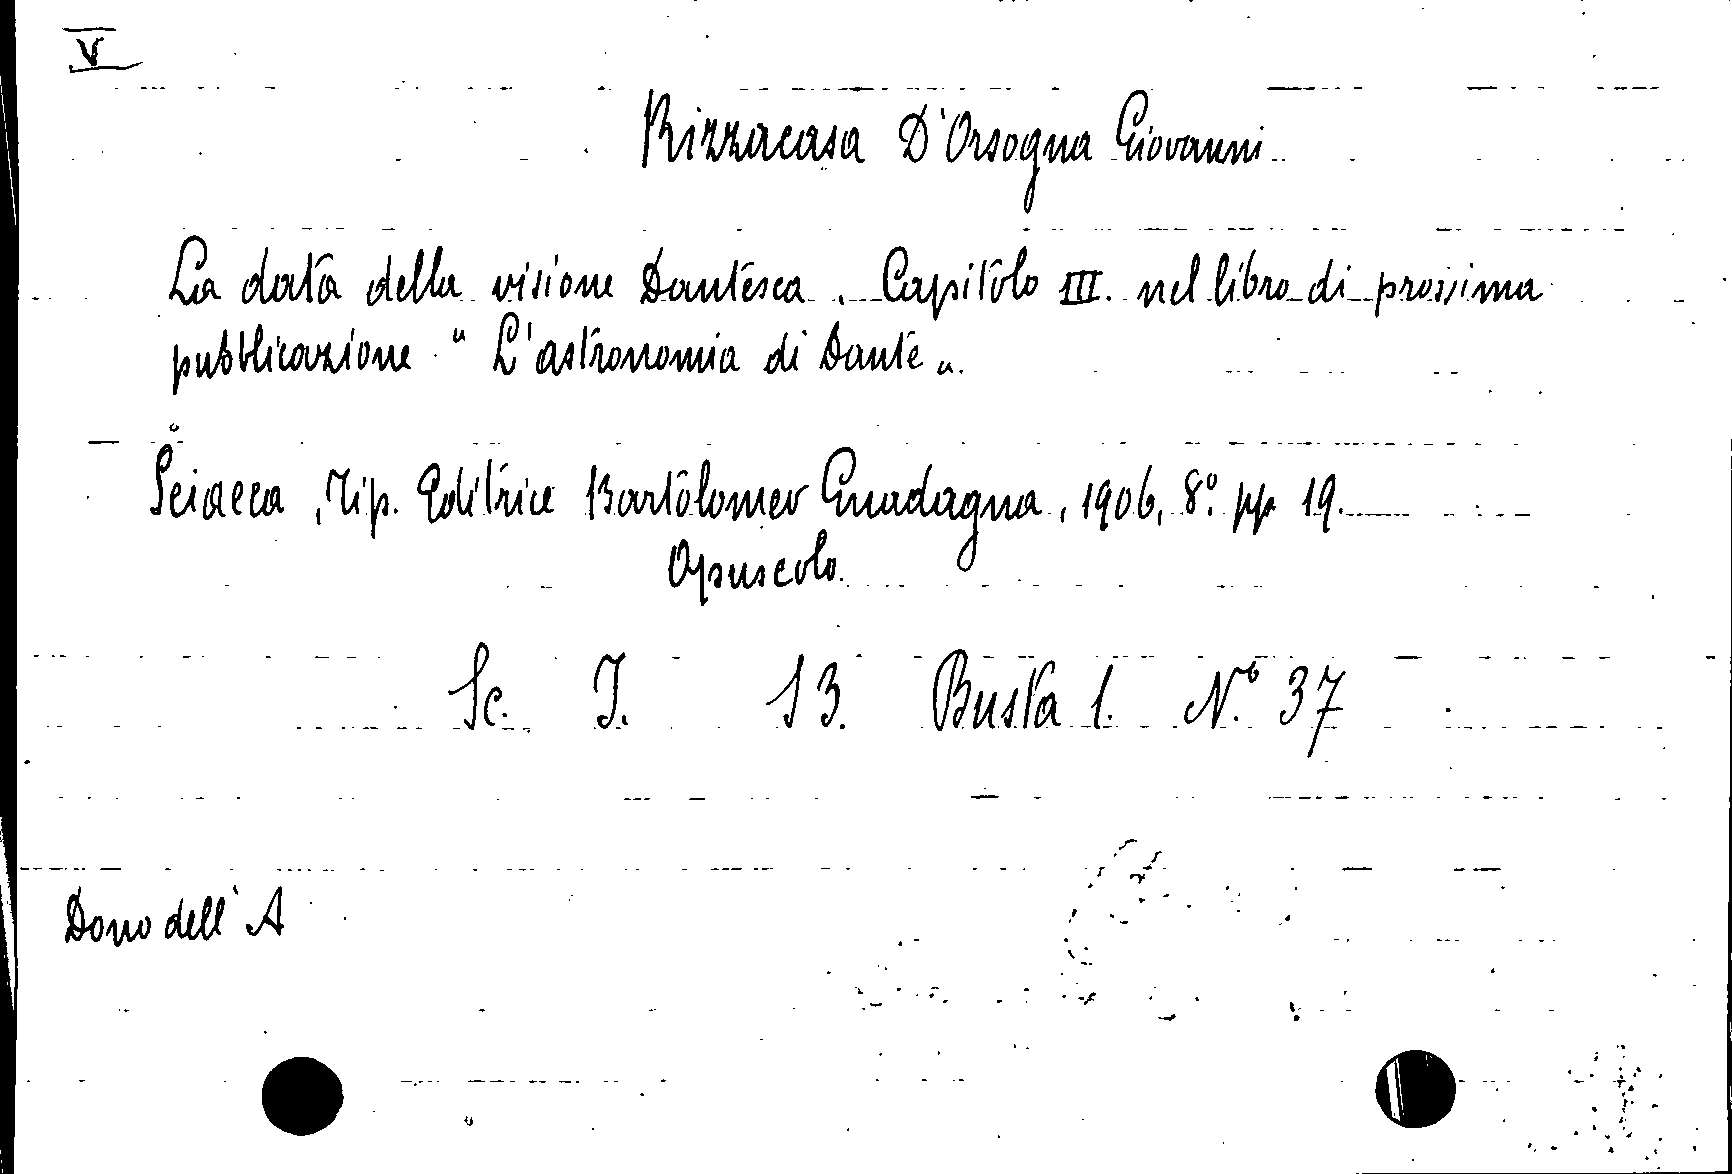 V
Rizzacasa D'Orsogna Giovanni
La data della visione Dantesca. Capitolo III. nel libro di prossima
pubblicazione "L'astronomia di Dante".
Sciacca, Tip. Editrice Bartolomeo Guadagna, 1906, 8.° pp 19.
Opuscolo.
Sc. I. 13. Busta 1. N.° 37
Dono dell'A